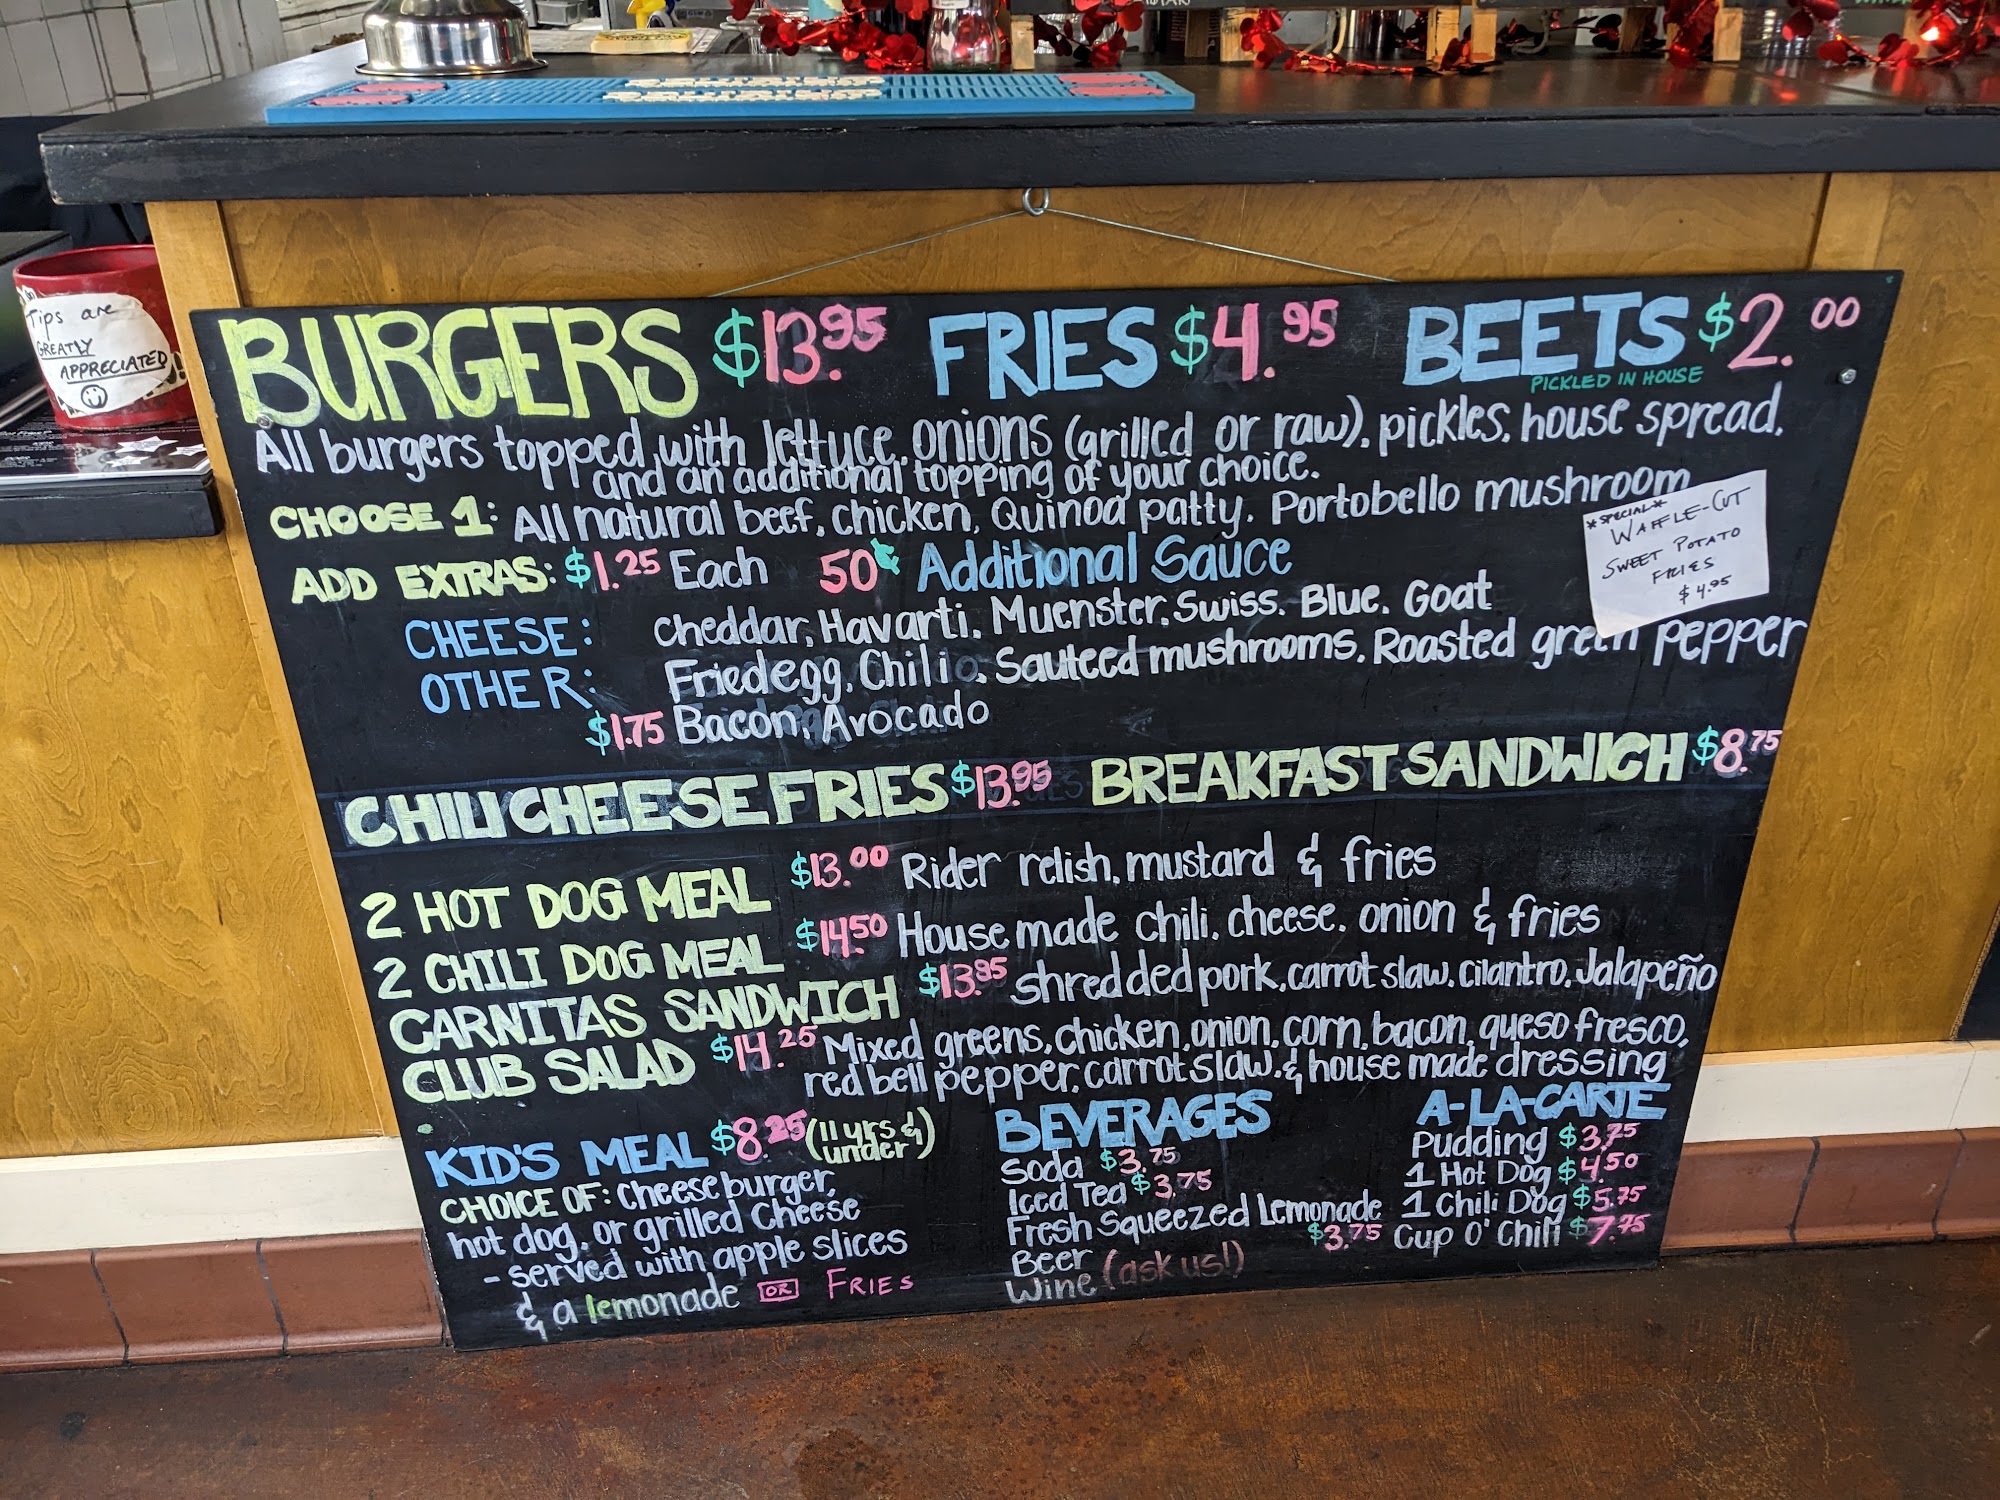 Tips are
GREATLY
APPRECIATED!
BURGERS $13.95 FRIES $4.95 BEETS $2.00
PICKLED IN HOUSE
All burgers topped with lettuce, onions (grilled or raw), pickles, house spread,
and an additional topping of your choice.
CHOOSE 1: All natural beef, chicken, Quinoa patty, Portobello mushroom
*SPECIAL*
WAFFLE-CUT
SWEET POTATO
FRIES
$4.95
ADD EXTRAS: $1.25 Each 50¢ Additional Sauce
CHEESE: cheddar, Havarti, Muenster, Swiss, Blue, Goat
OTHER: Fried egg, Chili, Sauteed mushrooms, Roasted green pepper
$1.75 Bacon, Avocado
CHILI CHEESE FRIES $13.95 BREAKFAST SANDWICH $8.75
2 HOT DOG MEAL $13.00 Rider relish, mustard & fries
2 CHILI DOG MEAL $14.50 House made chili, cheese, onion & fries
CARNITAS SANDWICH $13.95 shredded pork, carrot slaw, cilantro, Jalapeño
CLUB SALAD $14.25 Mixed greens, chicken, onion, corn, bacon, queso fresco,
red bell pepper, carrot slaw, & house made dressing
KID'S MEAL $8.25 (11 yrs & under)
CHOICE OF: Cheeseburger,
hot dog, or grilled cheese
- served with apple slices
& a lemonade OR FRIES
BEVERAGES
Soda $3.75
Iced Tea $3.75
Fresh Squeezed Lemonade
$3.75
Beer
Wine (ask us!)
A-LA-CARTE
Pudding $3.75
1 Hot Dog $4.50
1 Chili Dog $5.75
Cup O' Chili $7.75